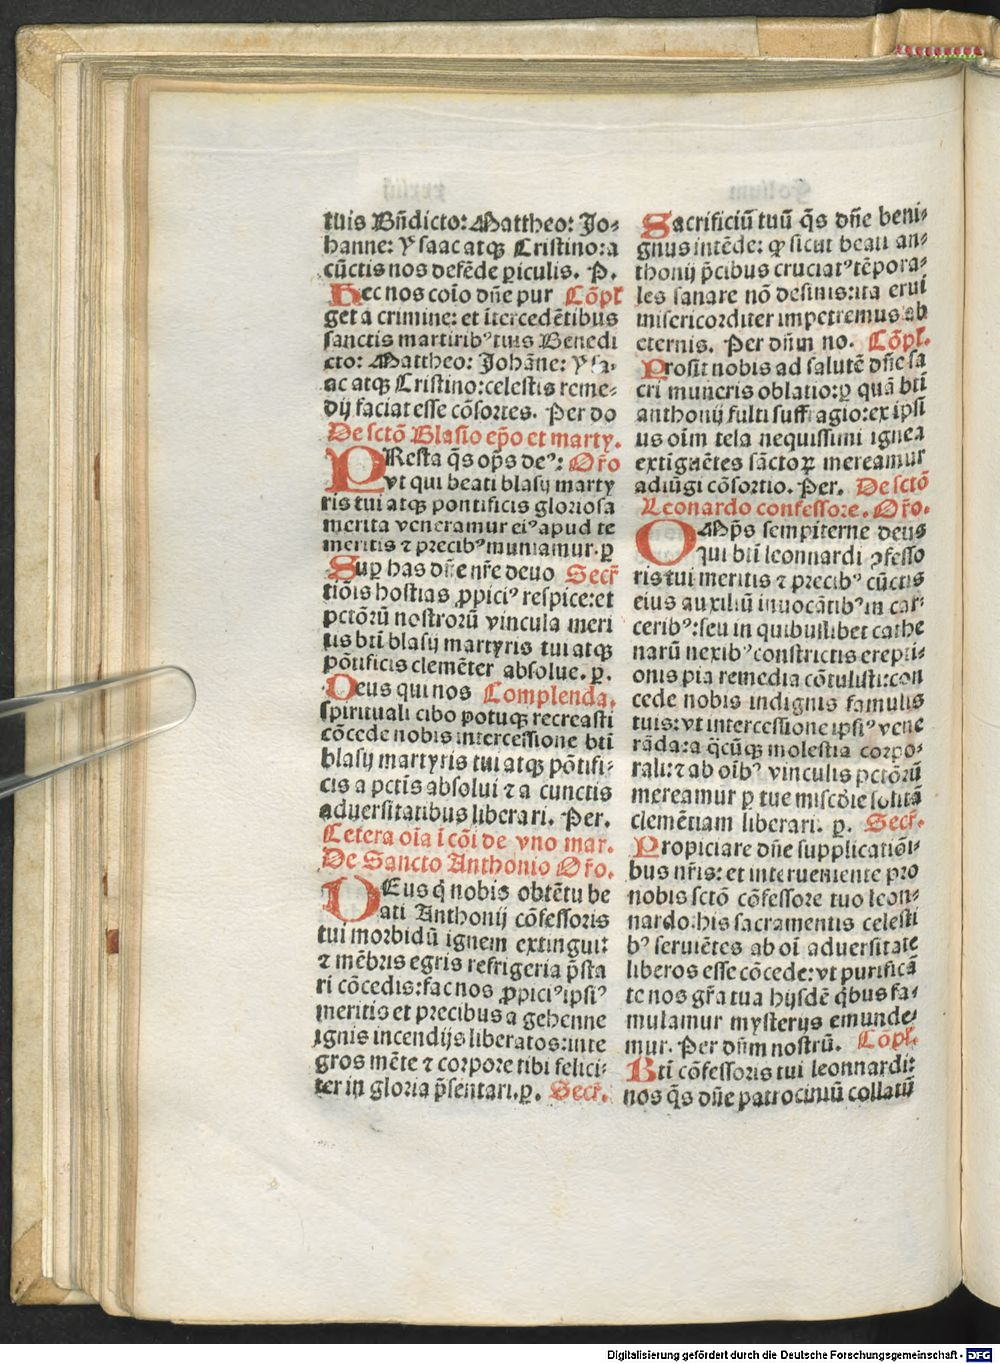 tuis Bn̄dicto: Mattheo: Jo⸗
hanne: Ysaac atqꝫ Cristino: a
cūctis nos defēde ꝑiculis. P.
Hec nos coīo dn̄e pur Cōpl̄
get a crimine: et ītercedētibus
sanctis martiribꝰ tuis Benedi
cto: Mattheo: Johāne: Ysa⸗
ac atqꝫ Cristino: celestis reme⸗
dij faciat esse cōsortes. Per do
De sctō Blasio ep̄o et marty.
PResta q̄s op̄s deꝰ: Or̄o
vt qui beati blasij marty
ris tui atqꝫ pontificis gloriosa
merita veneramur eiꝰ apud te
meritis ⁊ precibꝰ muniamur. ꝑ
Suꝑ has dn̄e nr̄e deuo Secr̄
tiōis hostias ꝓpiciꝰ respice: et
pctōrū nostrorū vincula meri
tis btī blasij martyris tui atqꝫ
pōtificis clemēter absolue. ꝑ.
Deus qui nos Complenda.
spirituali cibo potuqꝫ recreasti
cōcede nobis intercessione btī
blasij martyris tui atqꝫ pōtifi⸗
cis a pctīs absolui ⁊ a cunctis
aduersitatibus liberari. Per.
Cetera oīa ī cōi de vno mar.
De Sancto Anthonio Or̄o.
DEus q̇ nobis obtētu be
ati Anthonij cōfessoris
tui morbidū ignem extinguit
⁊ mēbris egris refrigeria p̄sta
ri cōcedis: fac nos ꝓpiciꝰ ipsiꝰ
meritis et precibus a gehenne
ignis incendijs liberatos: inte
gros mēte ⁊ corpore tibi felici⸗
ter in gloria p̄sentari. ꝑ. Secr̄.
Sacrificiū tuū q̄s dn̄e beni⸗
gnus intēde: ꝙ sicut beati an⸗
thonij p̄cibus cruciatꝰ tēpora⸗
les sanare nō desinis: ita erui
misericorditer impetremus ab
eternis. Per dn̄m no. Cōpl̄.
Prosit nobis ad salutē dn̄e sa
cri muneris oblatio: ꝑ quā btī
anthonij fulti suffragio: ex ipsi
us oīm tela nequissimi ignea
extiguētes sāctoꝝ mereamur
adiūgi cōsortio. Per. De sctō
Leonardo confessore. Or̄o.
OMp̄s sempiterne deus
qui btī leonnardi ꝯfesso
ris tui meritis ⁊ precibꝰ cūctis
eius auxiliū inuocātibꝰ in car⸗
ceribꝰ: seu in quibuslibet cathe
narū nexibꝰ constrictis erepti⸗
onis pia remedia cōtulisti: con
cede nobis indignis famulis
tuis: vt intercessione ipsiꝰ vene
rāda: a q̄cūqꝫ molestia corpo⸗
rali: ⁊ ab oībꝰ vinculis pctōrū
mereamur ꝑ tue miscōie solitā
clemētiam liberari. ꝑ. Secr̄.
Propiciare dn̄e supplicatiōi⸗
bus nr̄is: et interueniente pro
nobis sctō cōfessore tuo leon⸗
nardo: his sacramentis celesti
bꝰ seruiētes ab oī aduersitate
liberos esse cōcede: vt purificā
te nos gr̄a tua hijsdē q̇bus fa⸗
mulamur mysterijs emunde⸗
mur. Per dn̄m nostrū. Cōpl̄.
Btī cōfessoris tui leonnardi:
nos q̄s dn̄e patrociniū collatū
Digitalisierung gefördert durch die Deutsche Forschungsgemeinschaft - DFG